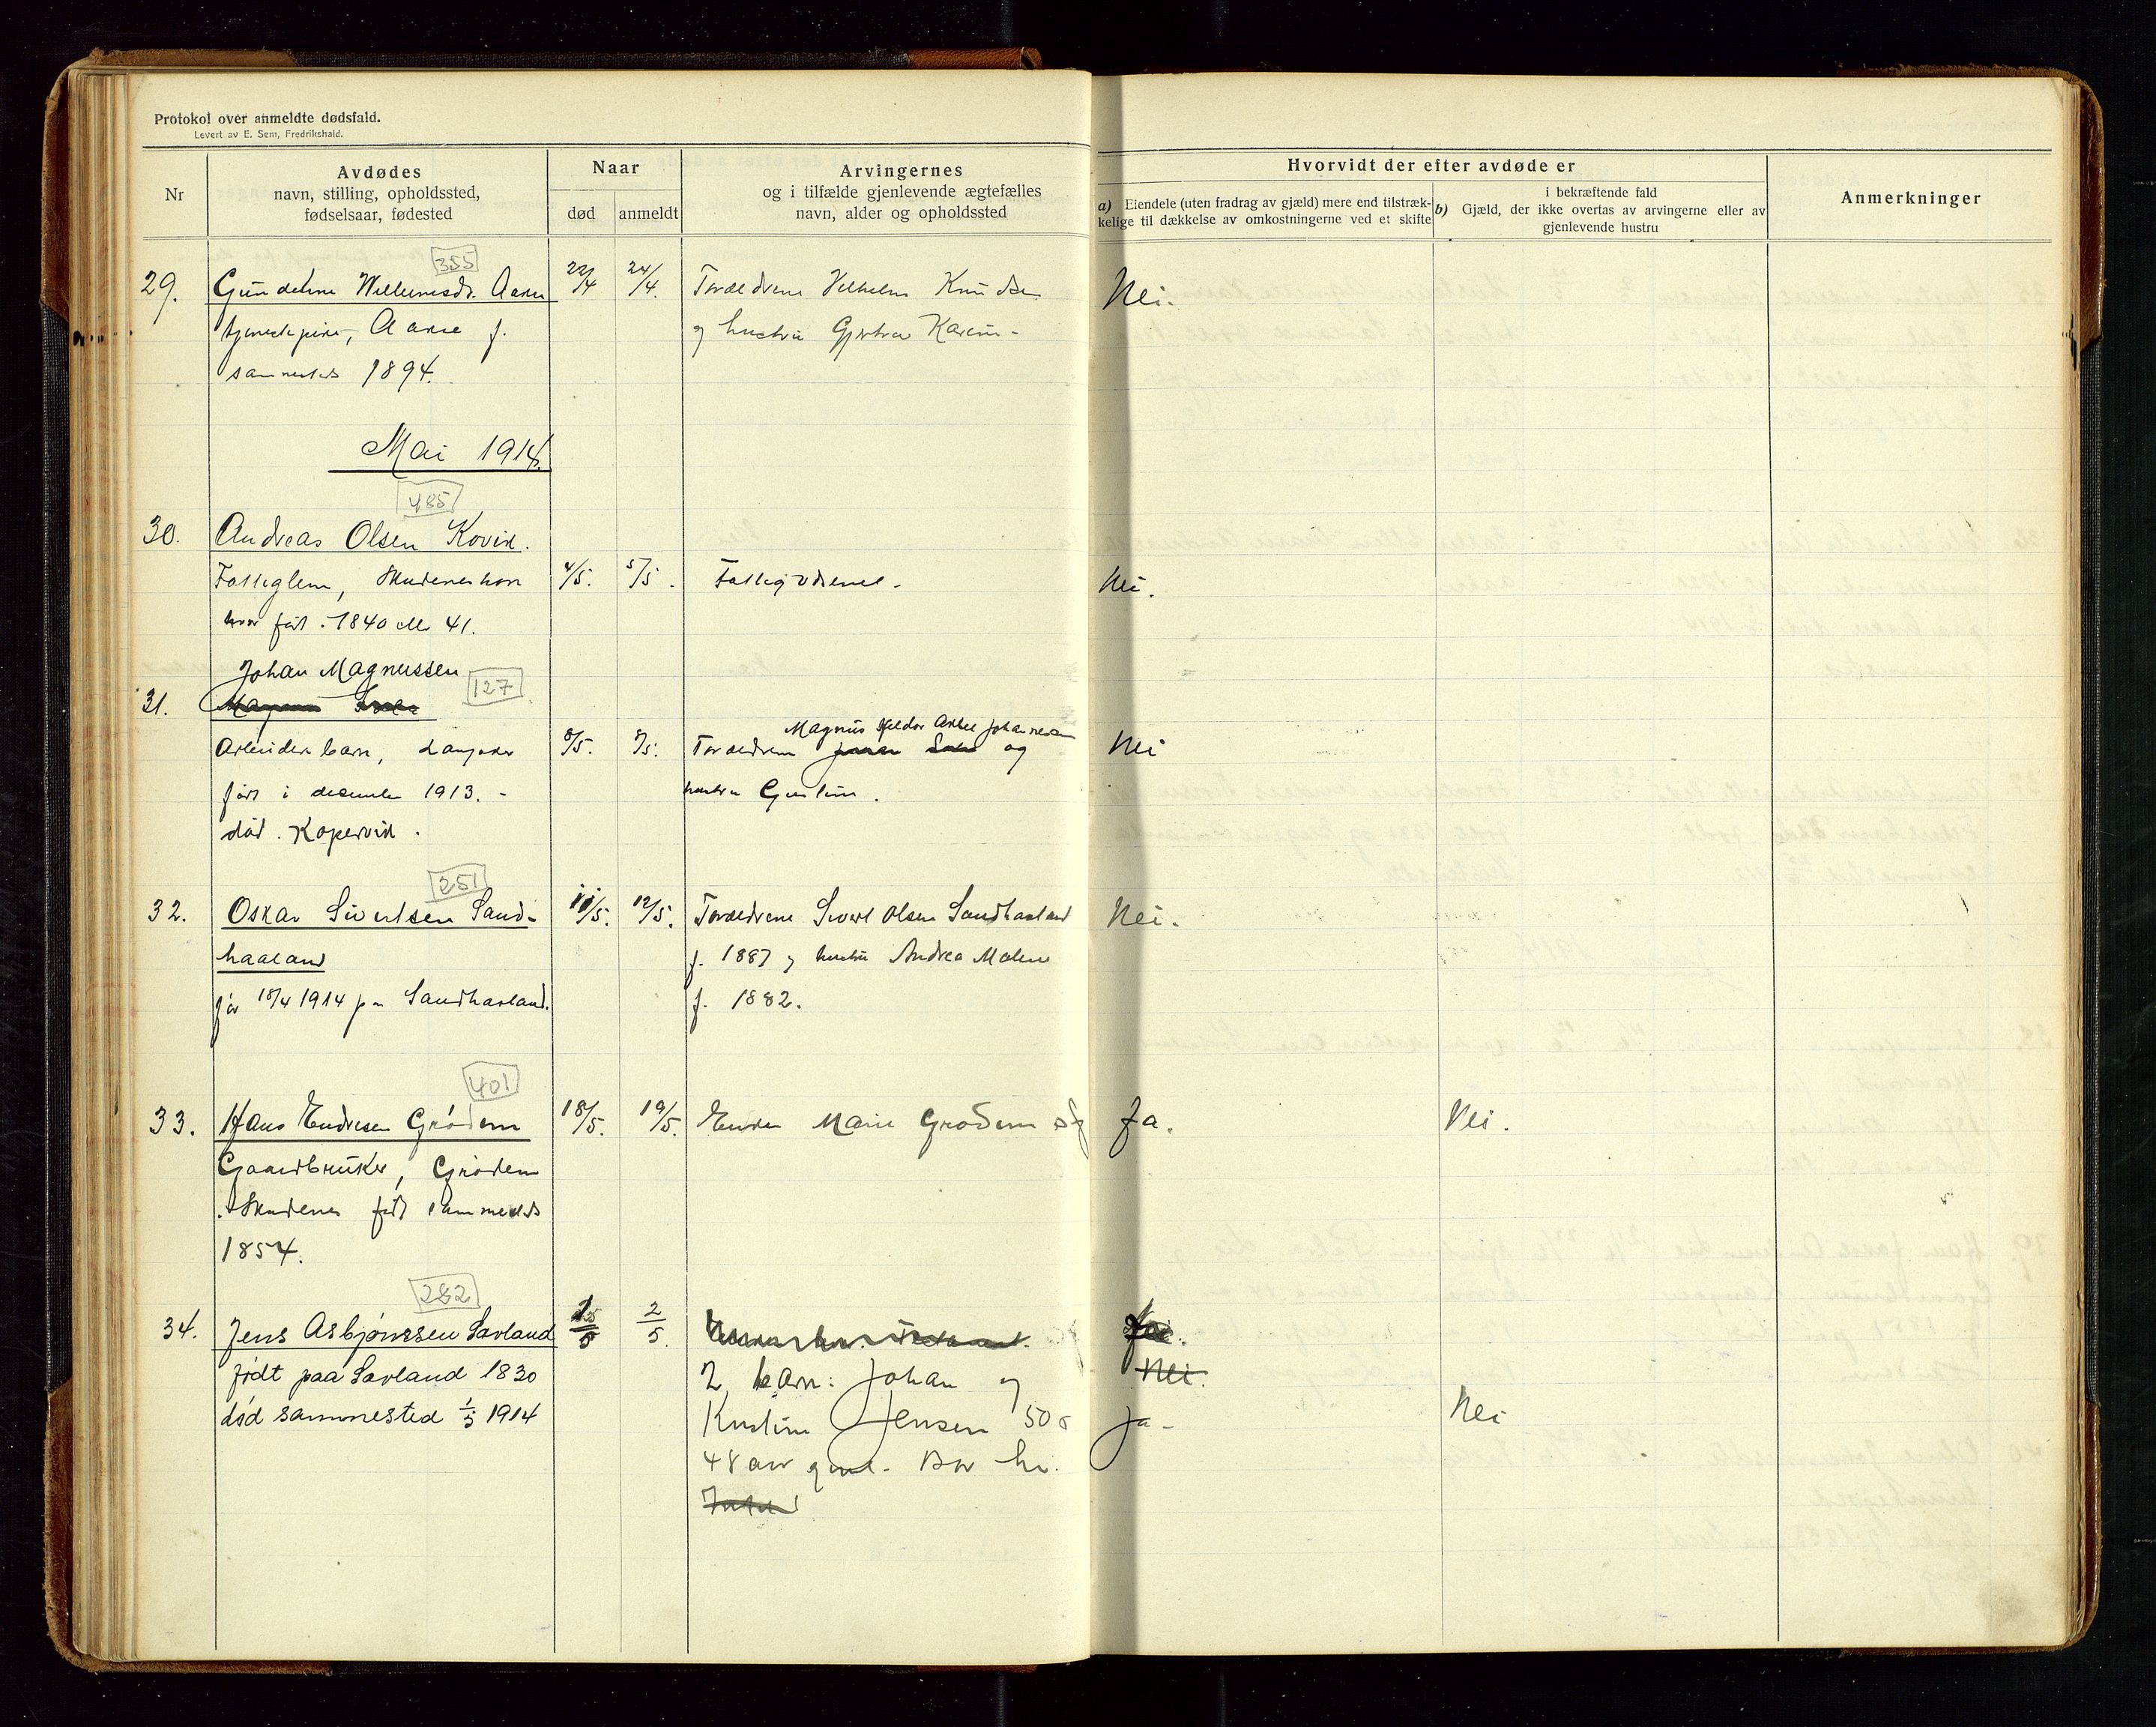 Protokol over anmeldte dødsfald.
Levert av E. Sem, Fredrikshald.
Nr
Avdødes
navn, stilling, opholdssted,
fødselsaar, fødested
Naar
død
anmeldt
Arvingernes
og i tilfælde gjenlevende ægtefælles
navn, alder og opholdssted
Hvorvidt der efter avdøde er
a) Eiendele (uten fradrag av gjæld) mere end tilstræk-
kelige til dækkelse av omkostningerne ved et skifte
i bekræftende fald
b) Gjæld, der ikke overtas av arvingerne eller av
gjenlevende hustru
Anmerkninger
355
29. 22/4 24/4. Forældrene Vilhelm Knudsen Nei.
tjenestepike, f.
og hustru Karin -
sammesteds 1894.
Mai 1914
485
30. Andreas Olsen Kovik.
Fattiglem, Skudeneshavn 4/5. 5/5. Nei.
hvor født. 1840 eller 41.
Johan Magnussen
31. 127
Magnus Johannessen
Arbeider barn, 8/5. Forældrene og Nei
født i december 1913. -
hustru
død. Kopervik.
251
32. Oskar Sivertsen Sand- 11/5. 12/5. Forældrene Sivert Olsen Sandhaaland Nei.
haaland f. 1887 og hustru Andrea Malene
18/4 1914 paa Sandhaaland. f. 1882.
401
33. Hans Endresen Grødem 18/5. 19/5. Enken Marie Grødem Ja. Nei.
Gaardbruker, Grødem
Skudenes født sammesteds
1854.
282
34. Jens Asbjørnssen Sævland 1/5 2/5.
født paa Sævland 1830 2 barn: Johan og Nei.
død sammested 1/5 1914 Jensen 50 Ja - Nei
48 aar